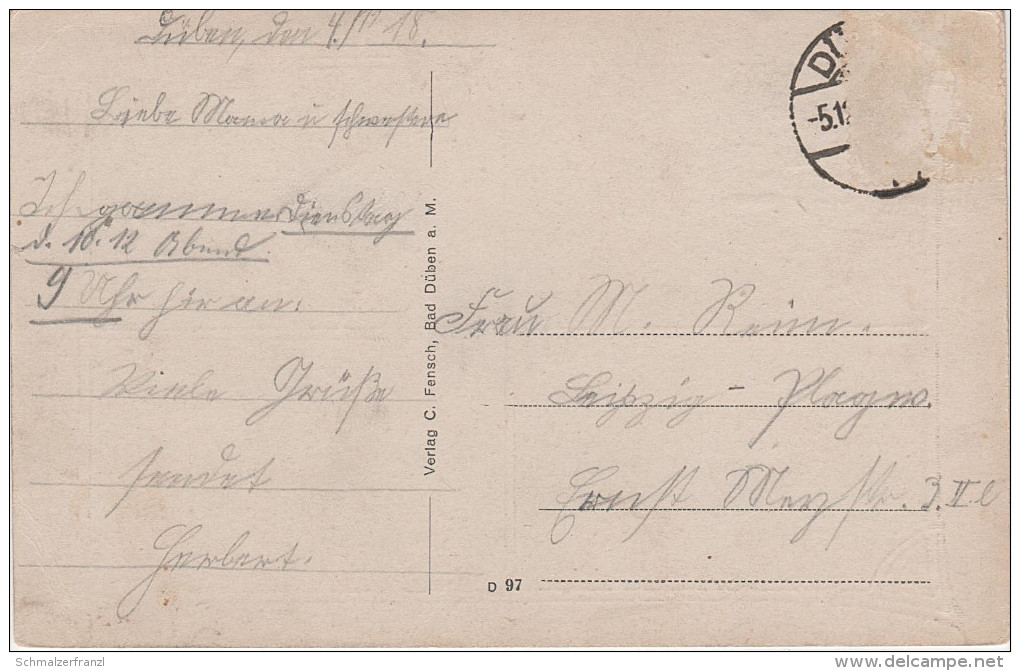 Düben, den 4./12 18.
Liebe Mama u schwestern
Ich komme Dienstag
d. 10. 12 Abend
9 Uhr hir an.
Viele Grüße
sendet
Herbert.
Verlag C. Fensch, Bad Düben a. M.
D 97
-5.12
Frau M. Reim.
Leipzig - Plagw.
Ernst Meystr. 3. II l
Schmalzerfranzl
delcampe.net